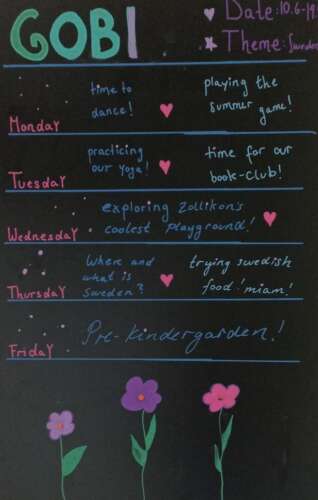 GOBI
Date: 10.6-19
Theme: Sweden
time to
dance!
playing the
summer game!
Monday
practicing
our yoga!
time for our
book-club!
Tuesday
exploring Zollikon's
coolest playground!
Wednesday
Where and
what is
Sweden?
trying swedish
food! miam!
Thursday
Pre-kindergarden!
Friday